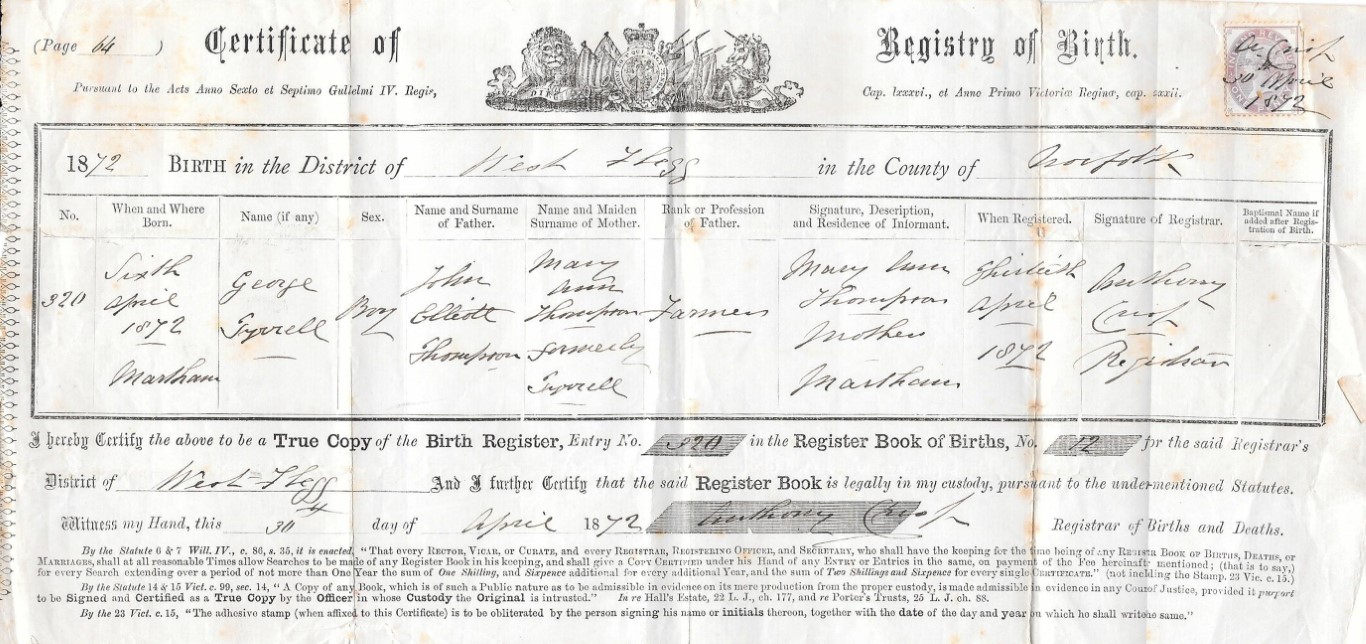 (Page 64 )
Certificate of
Registry of Birth.
Pursuant to the Acts Anno Sexto et Septimo Gulielmi IV. Regis,
Cap. lxxxvi., et Anno Primo Victoriæ Reginæ, cap. xxii.
A Crisp
30 April
1872
1872 BIRTH in the District of West Flegg in the County of Norfolk
No.
When and Where Born.
Name (if any)
Sex.
Name and Surname of Father.
Name and Maiden Surname of Mother.
Rank or Profession of Father.
Signature, Description, and Residence of Informant.
When Registered.
Signature of Registrar.
Baptismal Name if added after Registration of Birth.
320
Sixth
April
1872
Martham
George
Tyrrell
Boy
John
Elliott
Thompson
Mary
Ann
Thompson
formerly
Tyrrell
Farmer
Mary Ann
Thompson
Mother
Martham
Thirtieth
April
1872
Anthony
Crisp
Registrar
I hereby Certify the above to be a True Copy of the Birth Register, Entry No. 320 in the Register Book of Births, No. 12 for the said Registrar's
District of West Flegg And I further Certify that the said Register Book is legally in my custody, pursuant to the under-mentioned Statutes.
Witness my Hand, this 30 day of April 1872 Anthony Crisp Registrar of Births and Deaths.
By the Statute 6 & 7 Will. IV., c. 86, s. 35, it is enacted, "That every RECTOR, VICAR, or CURATE, and every REGISTRAR, REGISTERING OFFICER, and SECRETARY, who shall have the keeping for the time being of any REGISTER BOOK OF BIRTHS, DEATHS, OR
MARRIAGES, shall at all reasonable Times allow Searches to be made of any Register Book in his keeping, and shall give a COPY CERTIFIED under his Hand of any ENTRY or ENTRIES in the same, on payment of the Fee hereinaft mentioned; (that is to say,)
for every Search extending over a period of not more than One Year the sum of One Shilling, and Sixpence additional for every additional Year, and the sum of Two Shillings and Sixpence for every single CERTIFICATE." (not including the Stamp. 23 Vic. c. 15.)
By the Statute 14 & 15 Vict c. 99, sec. 14, "A Copy of any Book, which is of such a Public nature as to be admissible in evidence on its mere production from the proper custody, is made admissible in evidence in any Court of Justice, provided it purport
to be Signed and Certified as a True Copy by the Officer in whose Custody the Original is intrusted." In re Hall's Estate, 22 L. J., ch. 177, and re Porter's Trusts, 25 L. J. ch. 88.
By the 23 Vict. c. 15, "The adhesive stamp (when affixed to this Certificate) is to be obliterated by the person signing his name or initials thereon, together with the date of the day and year on which he shall write the same."